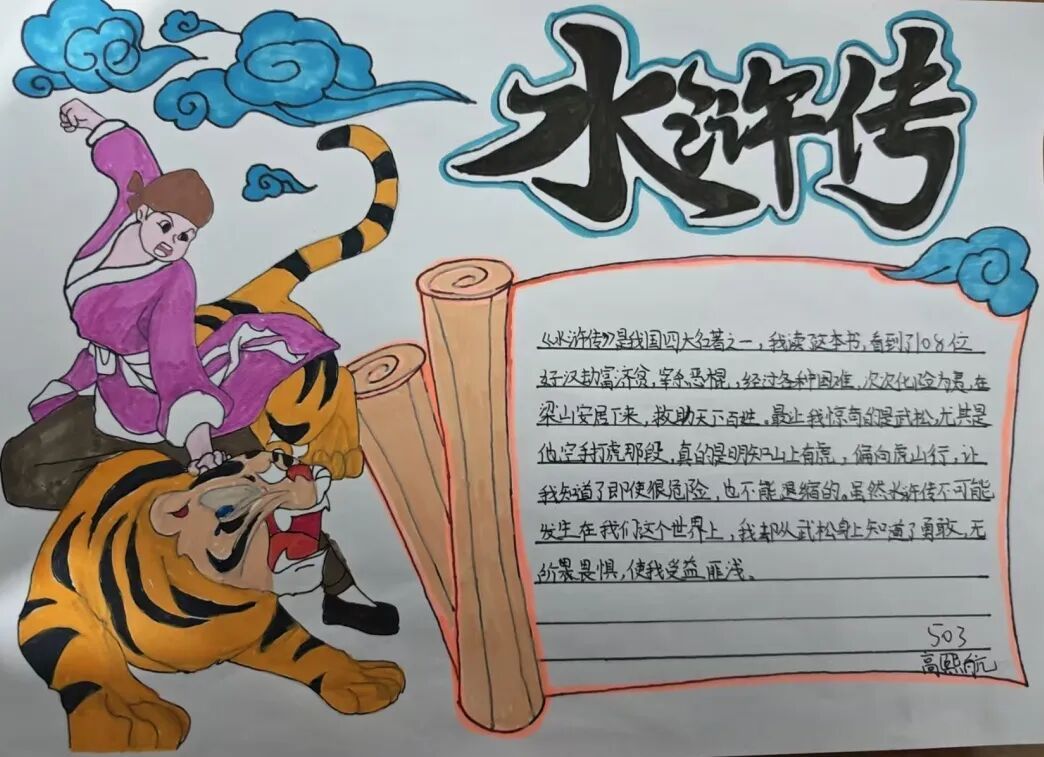 水浒传
《水浒传》是我国四大名著之一,我读了这本书,看到了108位
好汉劫富济贫,宰杀恶棍,经过各种困难,次次化险为夷,在
梁山安居下来,救助天下百姓。最让我惊奇的是武松,尤其是
他空手打虎那段,真的是明知山上有虎,偏向虎山行,让
我知道了即使很危险,也不能退缩的。虽然水浒传不可能
发生在我们这个世界上,我却从武松身上知道了勇敢,无
所畏惧,使我受益匪浅。
503
高熙航